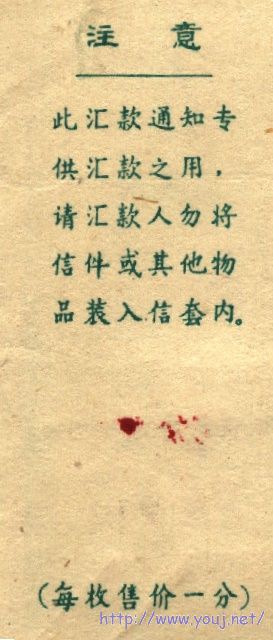 注 意
此汇款通知专
供汇款之用，
请汇款人勿将
信件或其他物
品装入信套内。
(每枚售价一分)
http://www.youj.net/